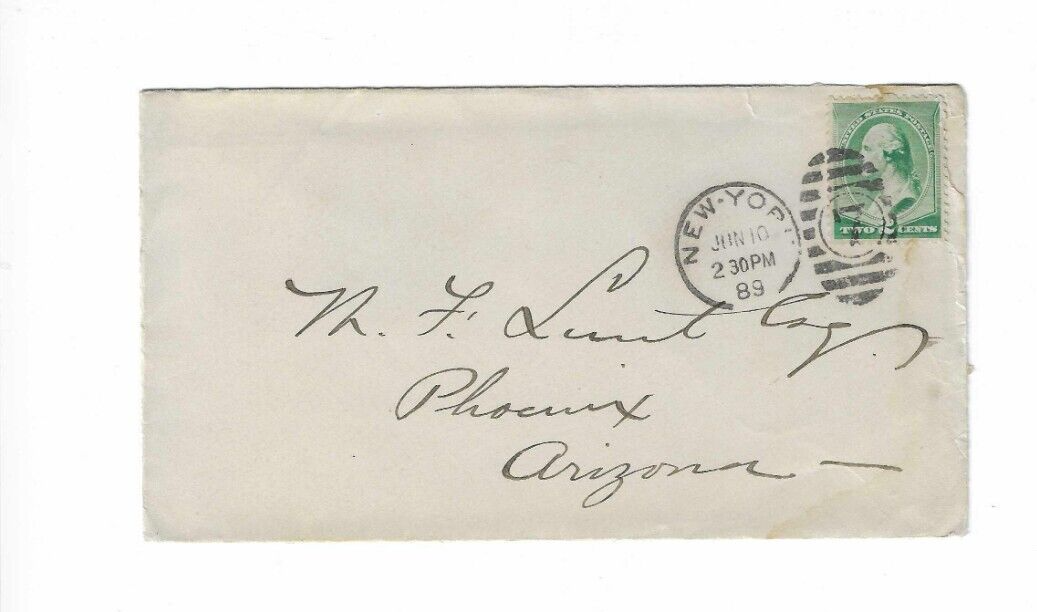 UNITED STATES POSTAGE
TWO 2 CENTS
NEW-YORK
JUN 10
2 30PM
89
M. F. Lunt Esq
Phoenix
Arizona —